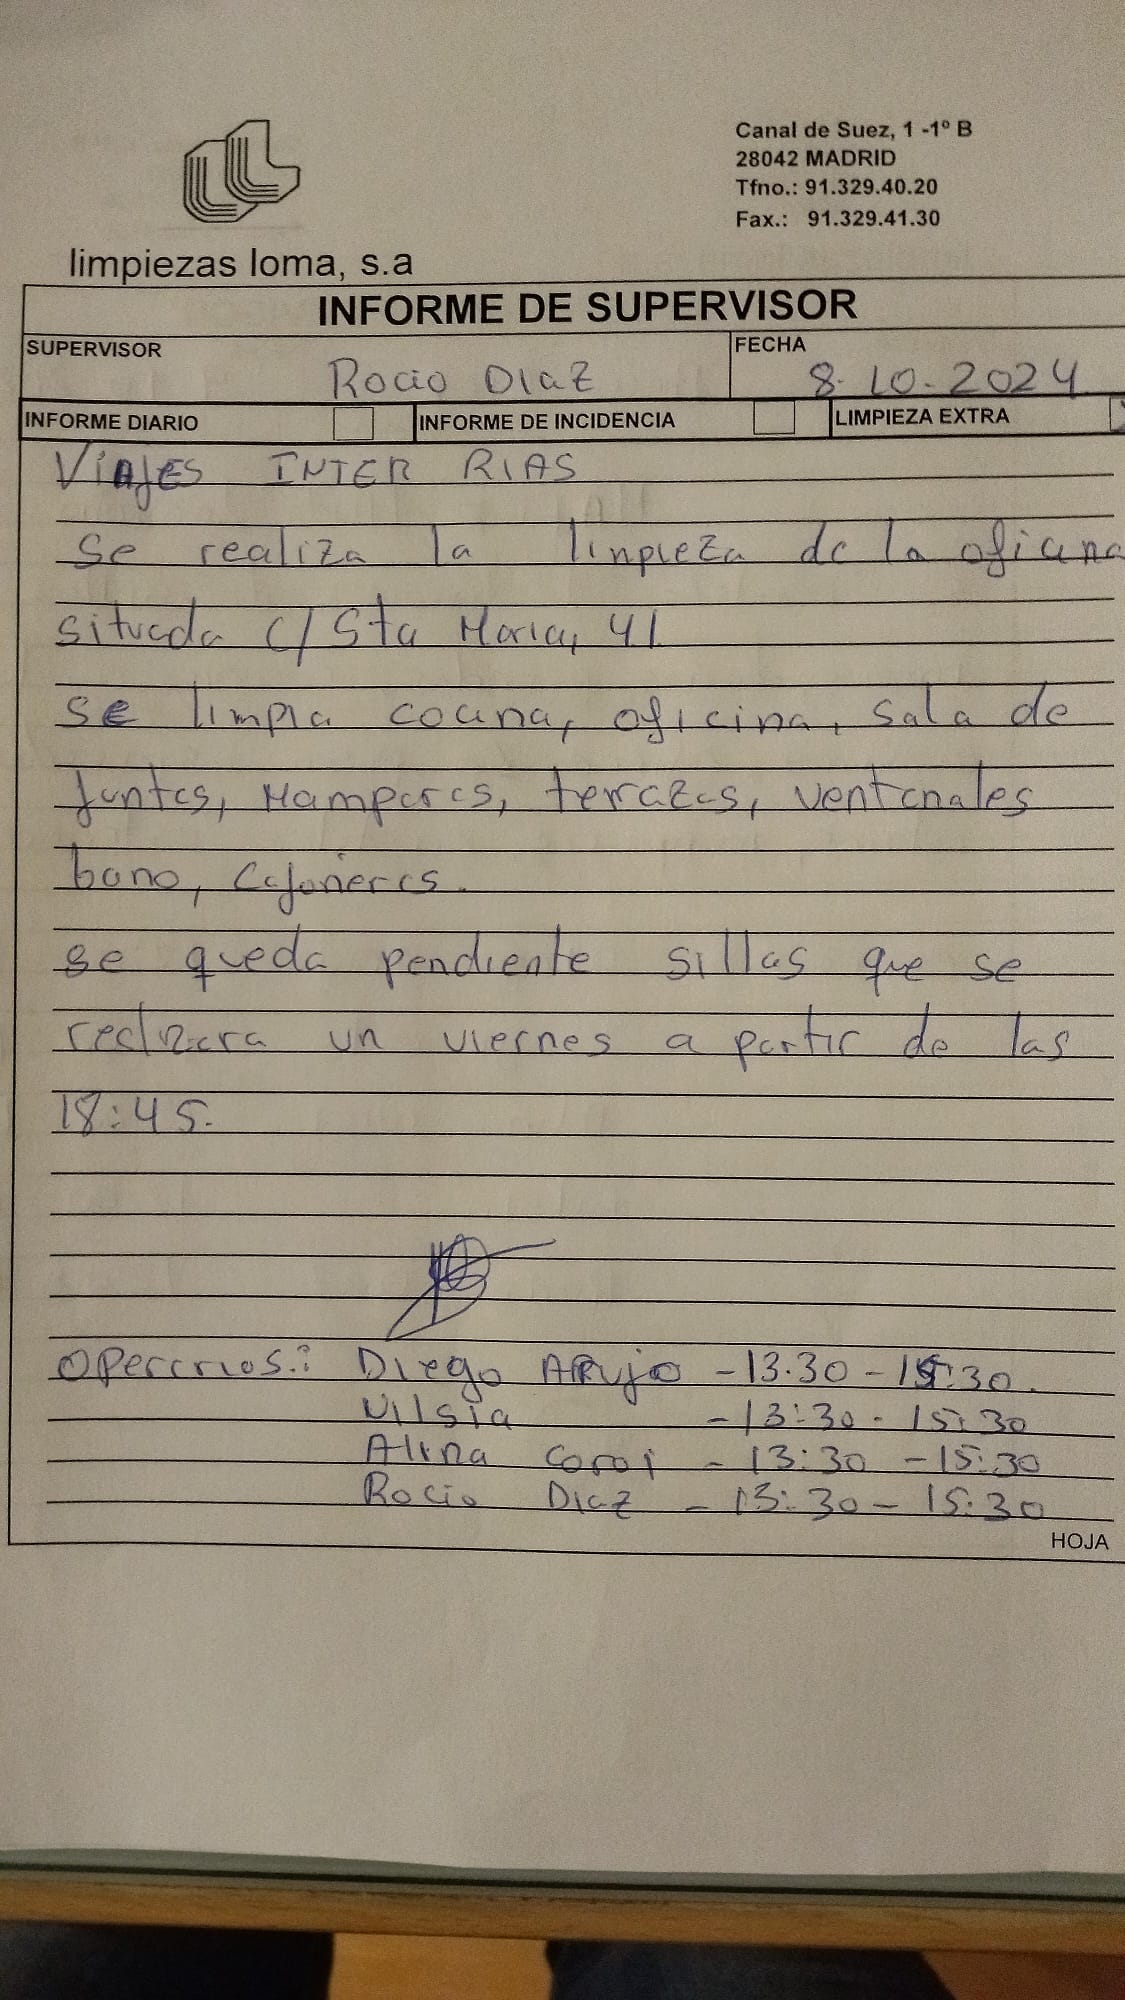 Canal de Suez, 1 -1º B
28042 MADRID
Tfno.: 91.329.40.20
Fax.: 91.329.41.30
limpiezas loma, s.a
INFORME DE SUPERVISOR
SUPERVISOR Rocio Diaz FECHA 8-10-2024
INFORME DIARIO INFORME DE INCIDENCIA LIMPIEZA EXTRA
VIAJES INTER RIAS
Se realiza la linpieza de la oficina
situada c/ Sta Maria, 41
se limpia cocina, oficina, sala de
juntas, Mamparas, terrazas, ventanales
bano, Cajoneras.
se queda pendiente sillas que se
realizara un viernes a partir de las
18:45.
operarios: Diego ARujo - 13.30 - 15:30.
Nilsia - 13:30 - 15:30
Alina Coroi - 13:30 - 15:30
Rocio Diaz - 13:30 - 15:30
HOJA